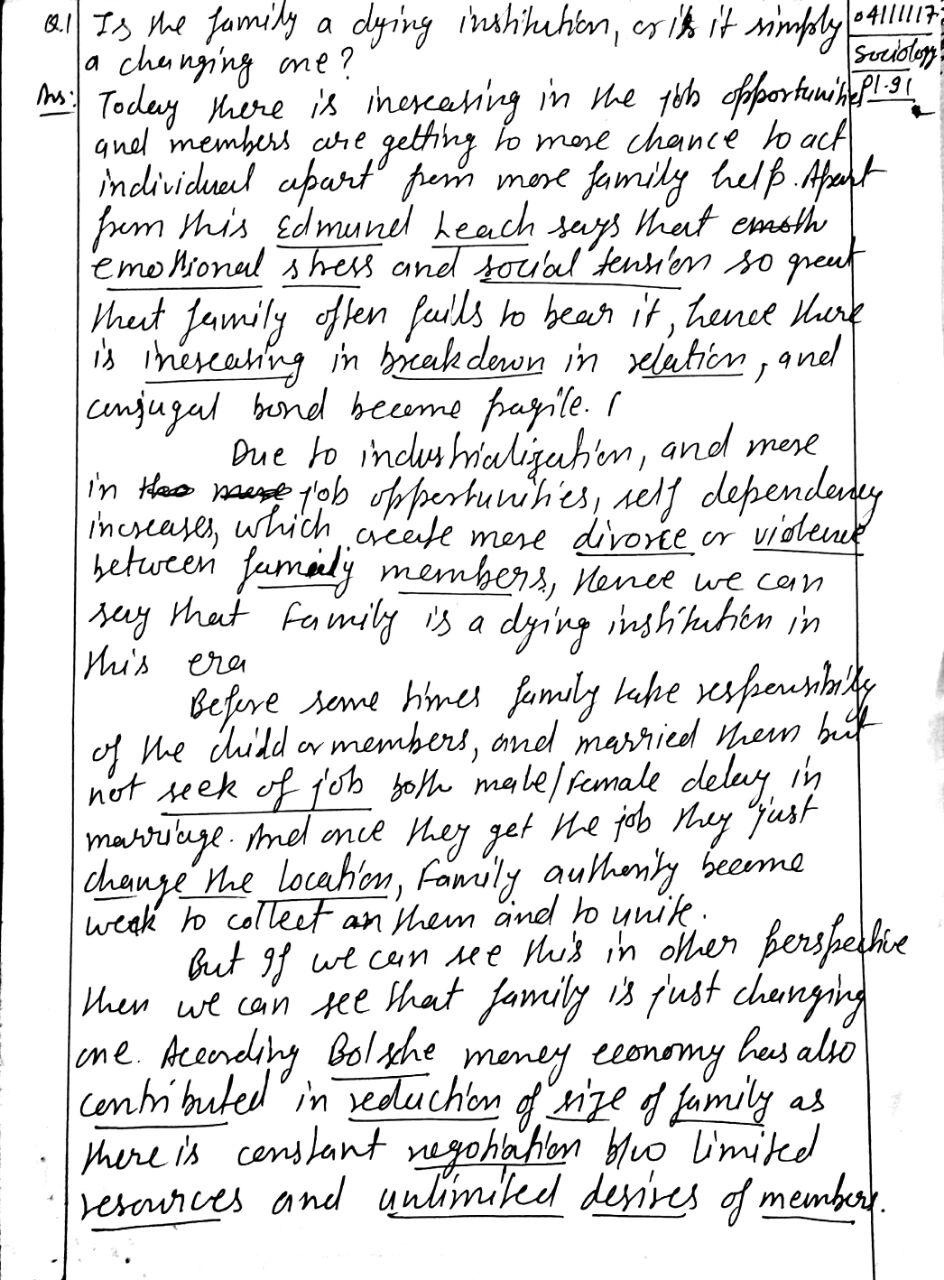 Q.1 Is the family a dying institution, or is it simply
a changing one?
04111117
Sociology
P1-91
Ans: Today there is increasing in the job opportunities
and members are getting to more chance to act
individual apart from more family help. Apart
from this Edmund Leach says that emoth
emotional stress and social tension so great
that family often fails to bear it, hence there
is increasing in breakdown in relation, and
conjugal bond become fragile.
Due to industrialization, and more
in too more job opportunities, self dependency
increases, which create more divorce or violence
between family members, Hence we can
say that Family is a dying institution in
this era
Before some times family take responsibility
of the child or members, and married them but
not seek of job both male/Female delay in
marriage. And once they get the job they just
change the location, Family authority become
weak to collect an them and to unite.
But If we can see this in other perspective
then we can see that family is just changing
one. According Bolshe money economy has also
contributed in reduction of size of family as
there is constant negotiation b/w limited
resources and unlimited desires of members.